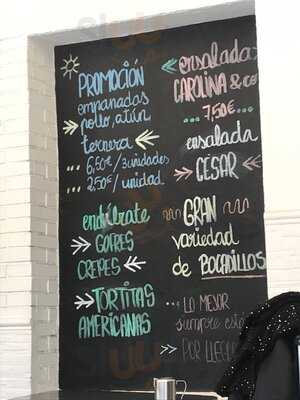 PROMOCIÓN
empanadas
pollo, atún
ternera
... 6,50€ / 3 unidades
... 2,50€ / unidad
endúlzate
GOFRES
CREPES
TORTITAS
AMERICANAS
ensalada
CAROLINA & co
... 7,50€ ...
ensalada
CESAR
GRAN
variedad
de BOCADILLOS
... LO MEJOR
siempre está
POR LLEGAR